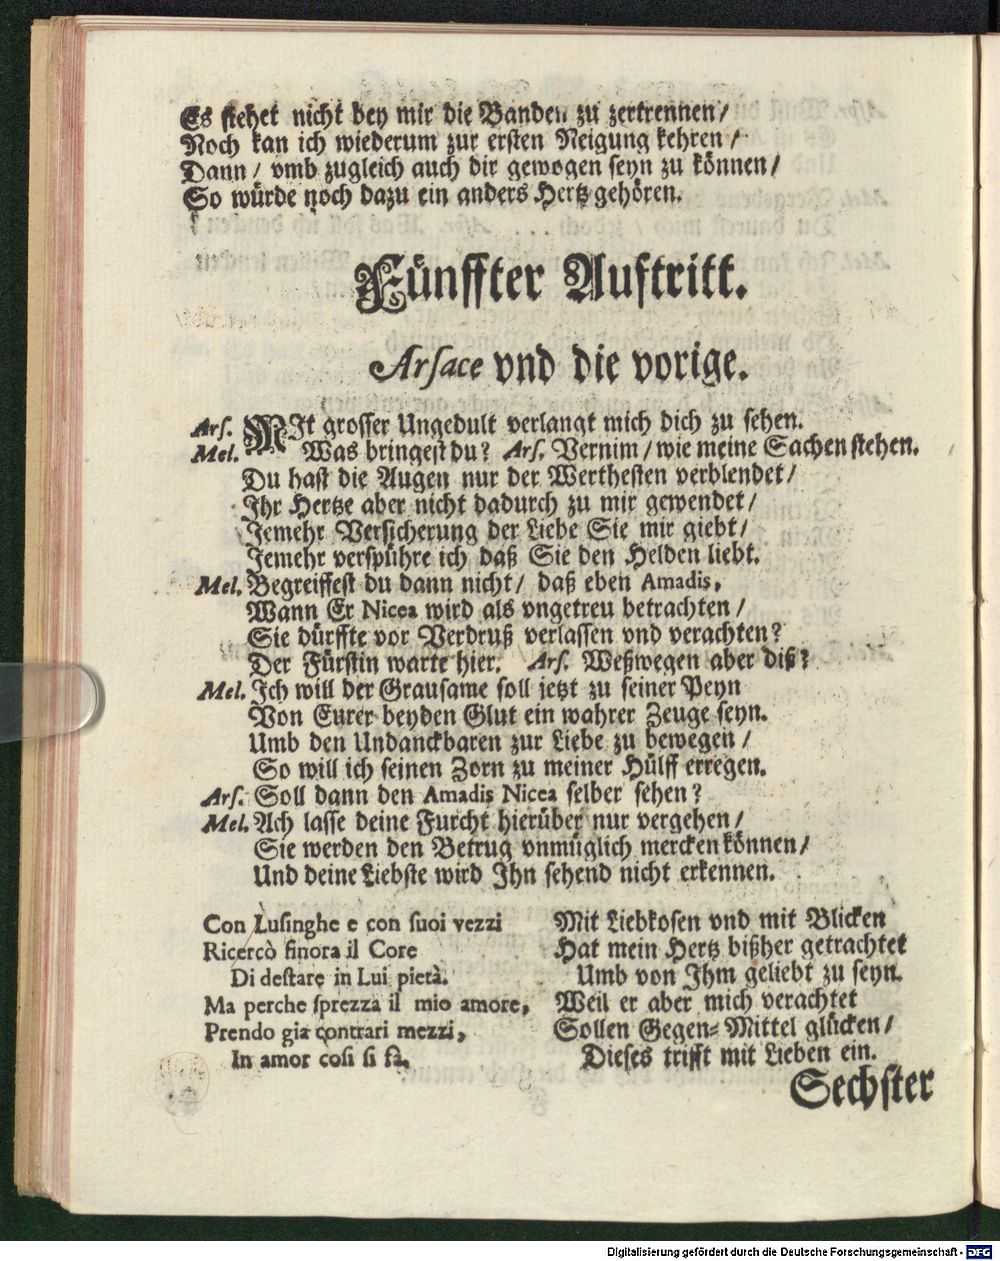 Es stehet nicht bey mir die Banden zu zertrennen /
Noch kan ich wiederum zur ersten Neigung kehren /
Dann / vmb zugleich auch dir gewogen seyn zu können /
So würde noch dazu ein anders Hertz gehören.
Fünffter Auftritt.
Arsace vnd die vorige.
Ars. MIt grosser Ungedult verlangt mich dich zu sehen.
Mel. Was bringest du? Ars. Vernim / wie meine Sachen stehen.
Du hast die Augen nur der Werthesten verblendet /
Ihr Hertze aber nicht dadurch zu mir gewendet /
Jemehr Versicherung der Liebe Sie mir giebt /
Jemehr verspühre ich daß Sie den Helden liebt.
Mel. Begreiffest du dann nicht / daß eben Amadis,
Wann Er Nicea wird als vngetreu betrachten /
Sie dürffte vor Verdruß verlassen vnd verachten?
Der Fürstin warte hier. Ars. Weßwegen aber diß?
Mel. Ich will der Grausame soll jetzt zu seiner Peyn
Von Eurer beyden Glut ein wahrer Zeuge seyn.
Umb den Undanckbaren zur Liebe zu bewegen /
So will ich seinen Zorn zu meiner Hülff erregen.
Ars. Soll dann den Amadis Nicea selber sehen?
Mel. Ach lasse deine Furcht hierüber nur vergehen /
Sie werden den Betrug vnmüglich mercken können /
Und deine Liebste wird Ihn sehend nicht erkennen.
Con Lusinghe e con suoi vezzi
Ricercò finora il Core
Di destare in Lui pietà.
Ma perche sprezza il mio amore,
Prendo gia contrari mezzi,
In amor così si fà.
Mit Liebkosen vnd mit Blicken
Hat mein Hertz bißher getrachtet
Umb von Ihm geliebt zu seyn.
Weil er aber mich verachtet
Sollen Gegen-Mittel glücken /
Dieses trifft mit Lieben ein.
Sechster
Digitalisierung gefördert durch die Deutsche Forschungsgemeinschaft - DFG